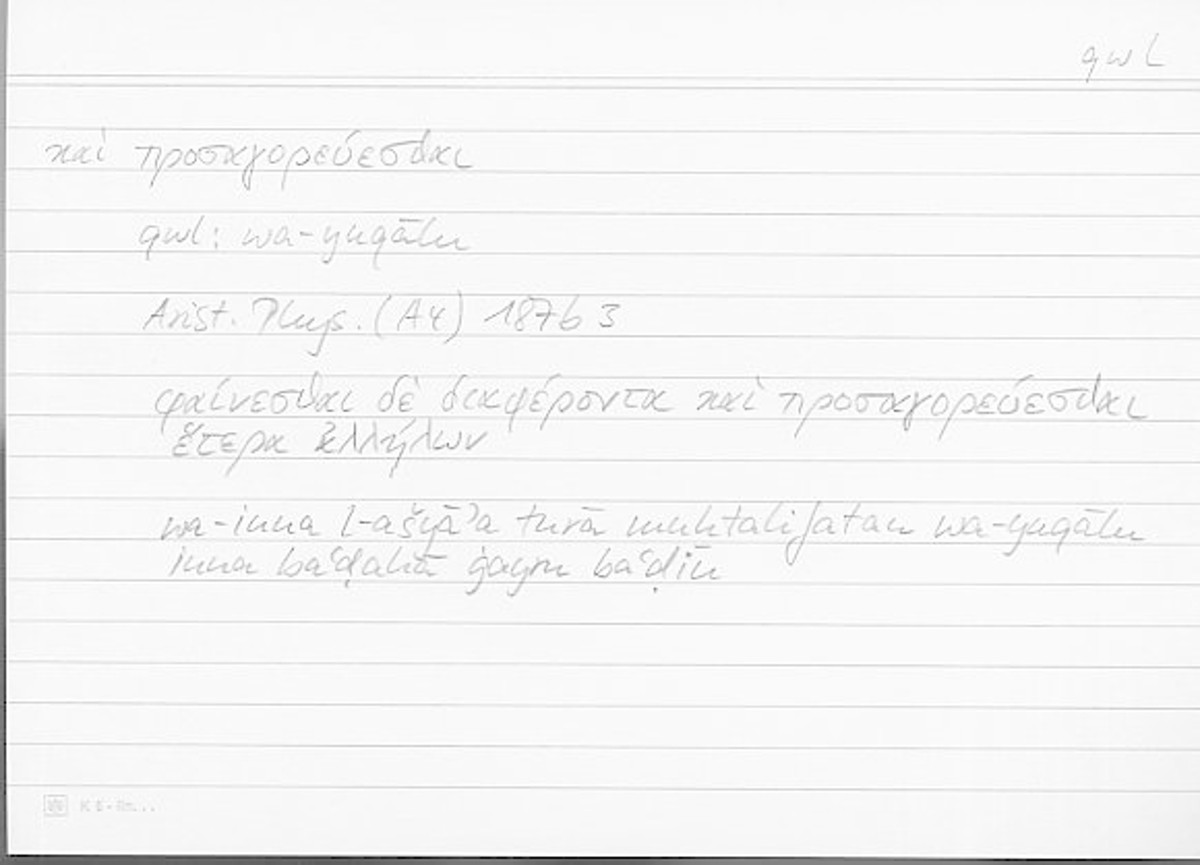 qwl
καὶ προσαγορεύεσθαι
qwl: wa-yuqālu
Arist. Phys. (A4) 187b 3
φαίνεσθαι δὲ διαφέροντα καὶ προσαγορεύεσθαι
ἕτερα ἀλλήλων
wa-inna l-ašyāʾa turā muhtalifatan wa-yuqālu
inna baʿḍahā ġayru baʿḍin